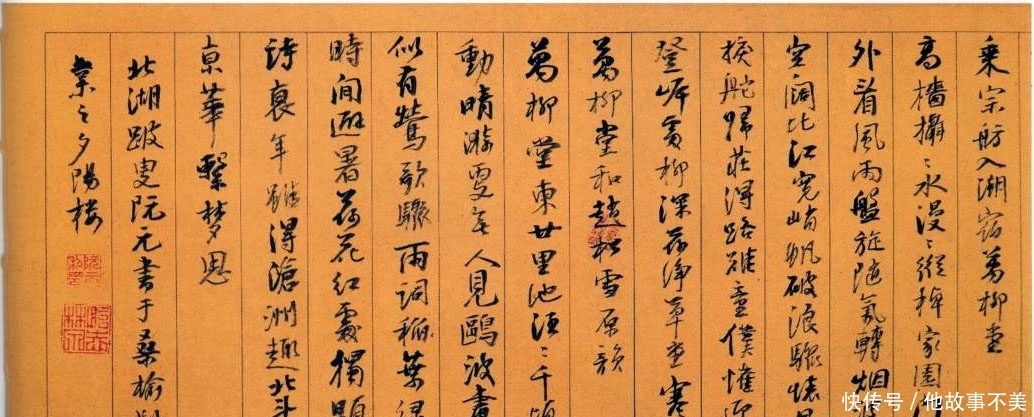 乘宗舫入湖宿萬柳堂
高檣攝〻水漫〻縱棹家園
外看風雨盤旋隨氣轉烟
空闊比江寬峭帆破浪驟
捩舵歸莊得路難童僕惟
登岸寅柳深荷淨草堂寒
萬柳堂和趙松雪原韻
萬柳堂東廿里池酒〻千頃
動晴漪更無人見鷗波畫
似有鶯歌驟雨詞稱葉
時間避暑荷花紅處獨題
詩衰年雖得滄洲趣北斗
京華繫夢思
北湖跛叟阮元書于桑榆別
業之夕陽樓
快传号／他故事不美